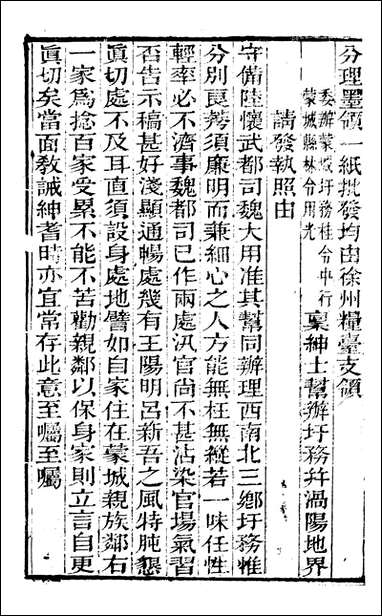 分理墨領一紙批發均由徐州糧臺支領
委辦蒙城圩務桂令中行
蒙城縣林令用光
稟紳士幫辦圩務幷渦陽地界
請發執照由
守備陸懷武都司魏大用准其幫同辦理西南北三鄉圩務惟
分別良莠須廉明而兼細心之人方能無枉無縱若一味任性
輕率必不濟事魏都司已作兩處汛官尚不甚沾染官場氣習
否告示稿甚好淺顯通暢處幾有王陽明呂新吾之風特肫懇
眞切處不及耳直須設身處地譬如自家住在蒙城親族鄰右
一家爲捻百家受累不能不苦勸親鄰以保身家則立言自更
眞切矣當面敎誡紳耆時亦宜常存此意至囑至囑